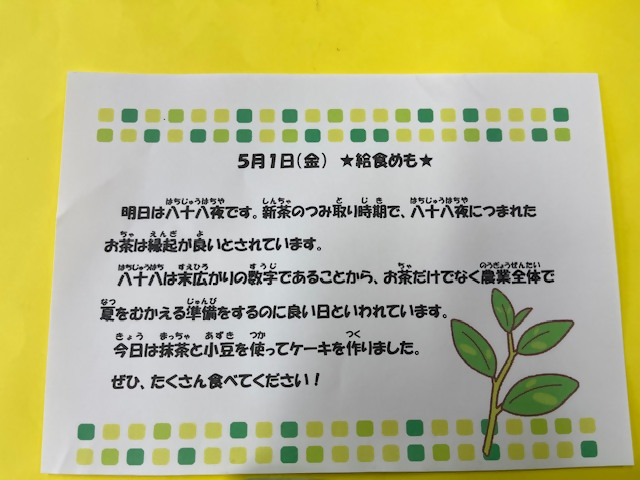 5月1日(金) ★給食めも★
明日は八十八夜です。新茶のつみ取り時期で、八十八夜につまれた
お茶は縁起が良いとされています。
八十八は末広がりの数字であることから、お茶だけでなく農業全体で
夏をむかえる準備をするのに良い日といわれています。
今日は抹茶と小豆を使ってケーキを作りました。
ぜひ、たくさん食べてください!